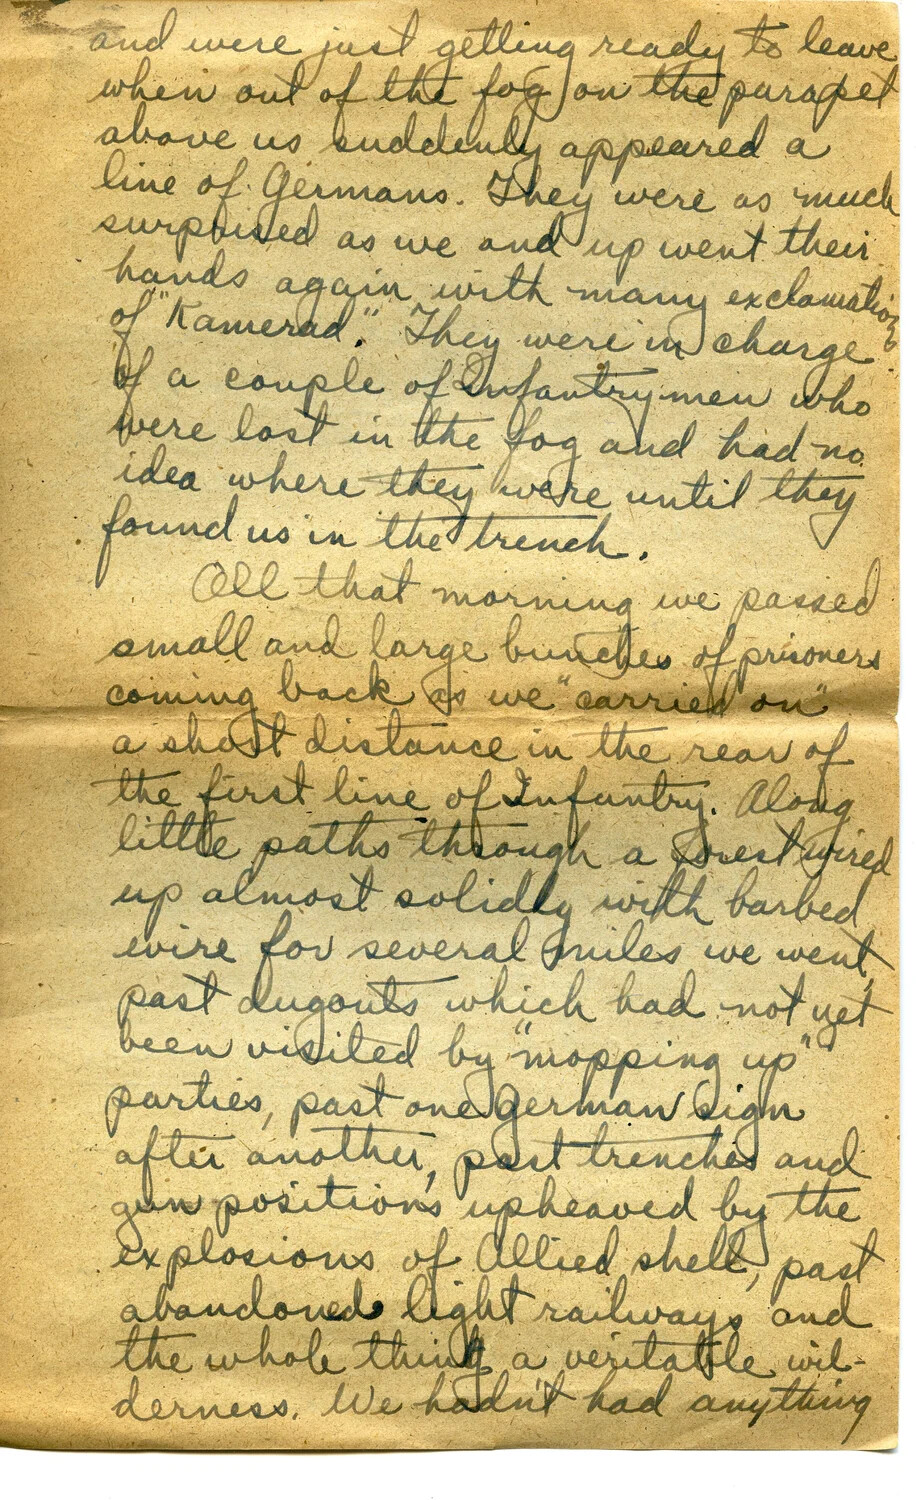 and were just getting ready to leave
when out of the fog on the parapet
above us suddenly appeared a
line of Germans. They were as much
surprised as we and up went their
hands again with many exclamations
of "Kamerad." They were in charge
of a couple of Infantrymen who
were lost in the fog and had no
idea where they were until they
found us in the trench.
All that morning we passed
small and large bunches of prisoners
coming back as we "carried on"
a short distance in the rear of
the first line of Infantry. Along
little paths through a forest wired
up almost solidly with barbed
wire for several miles we went,
past dugouts which had not yet
been visited by "mopping up"
parties, past one German sign
after another, past trenches and
gun positions upheaved by the
explosions of Allied shell, past
abandoned light railways and
the whole thing a veritable wil-
derness. We hadn't had anything